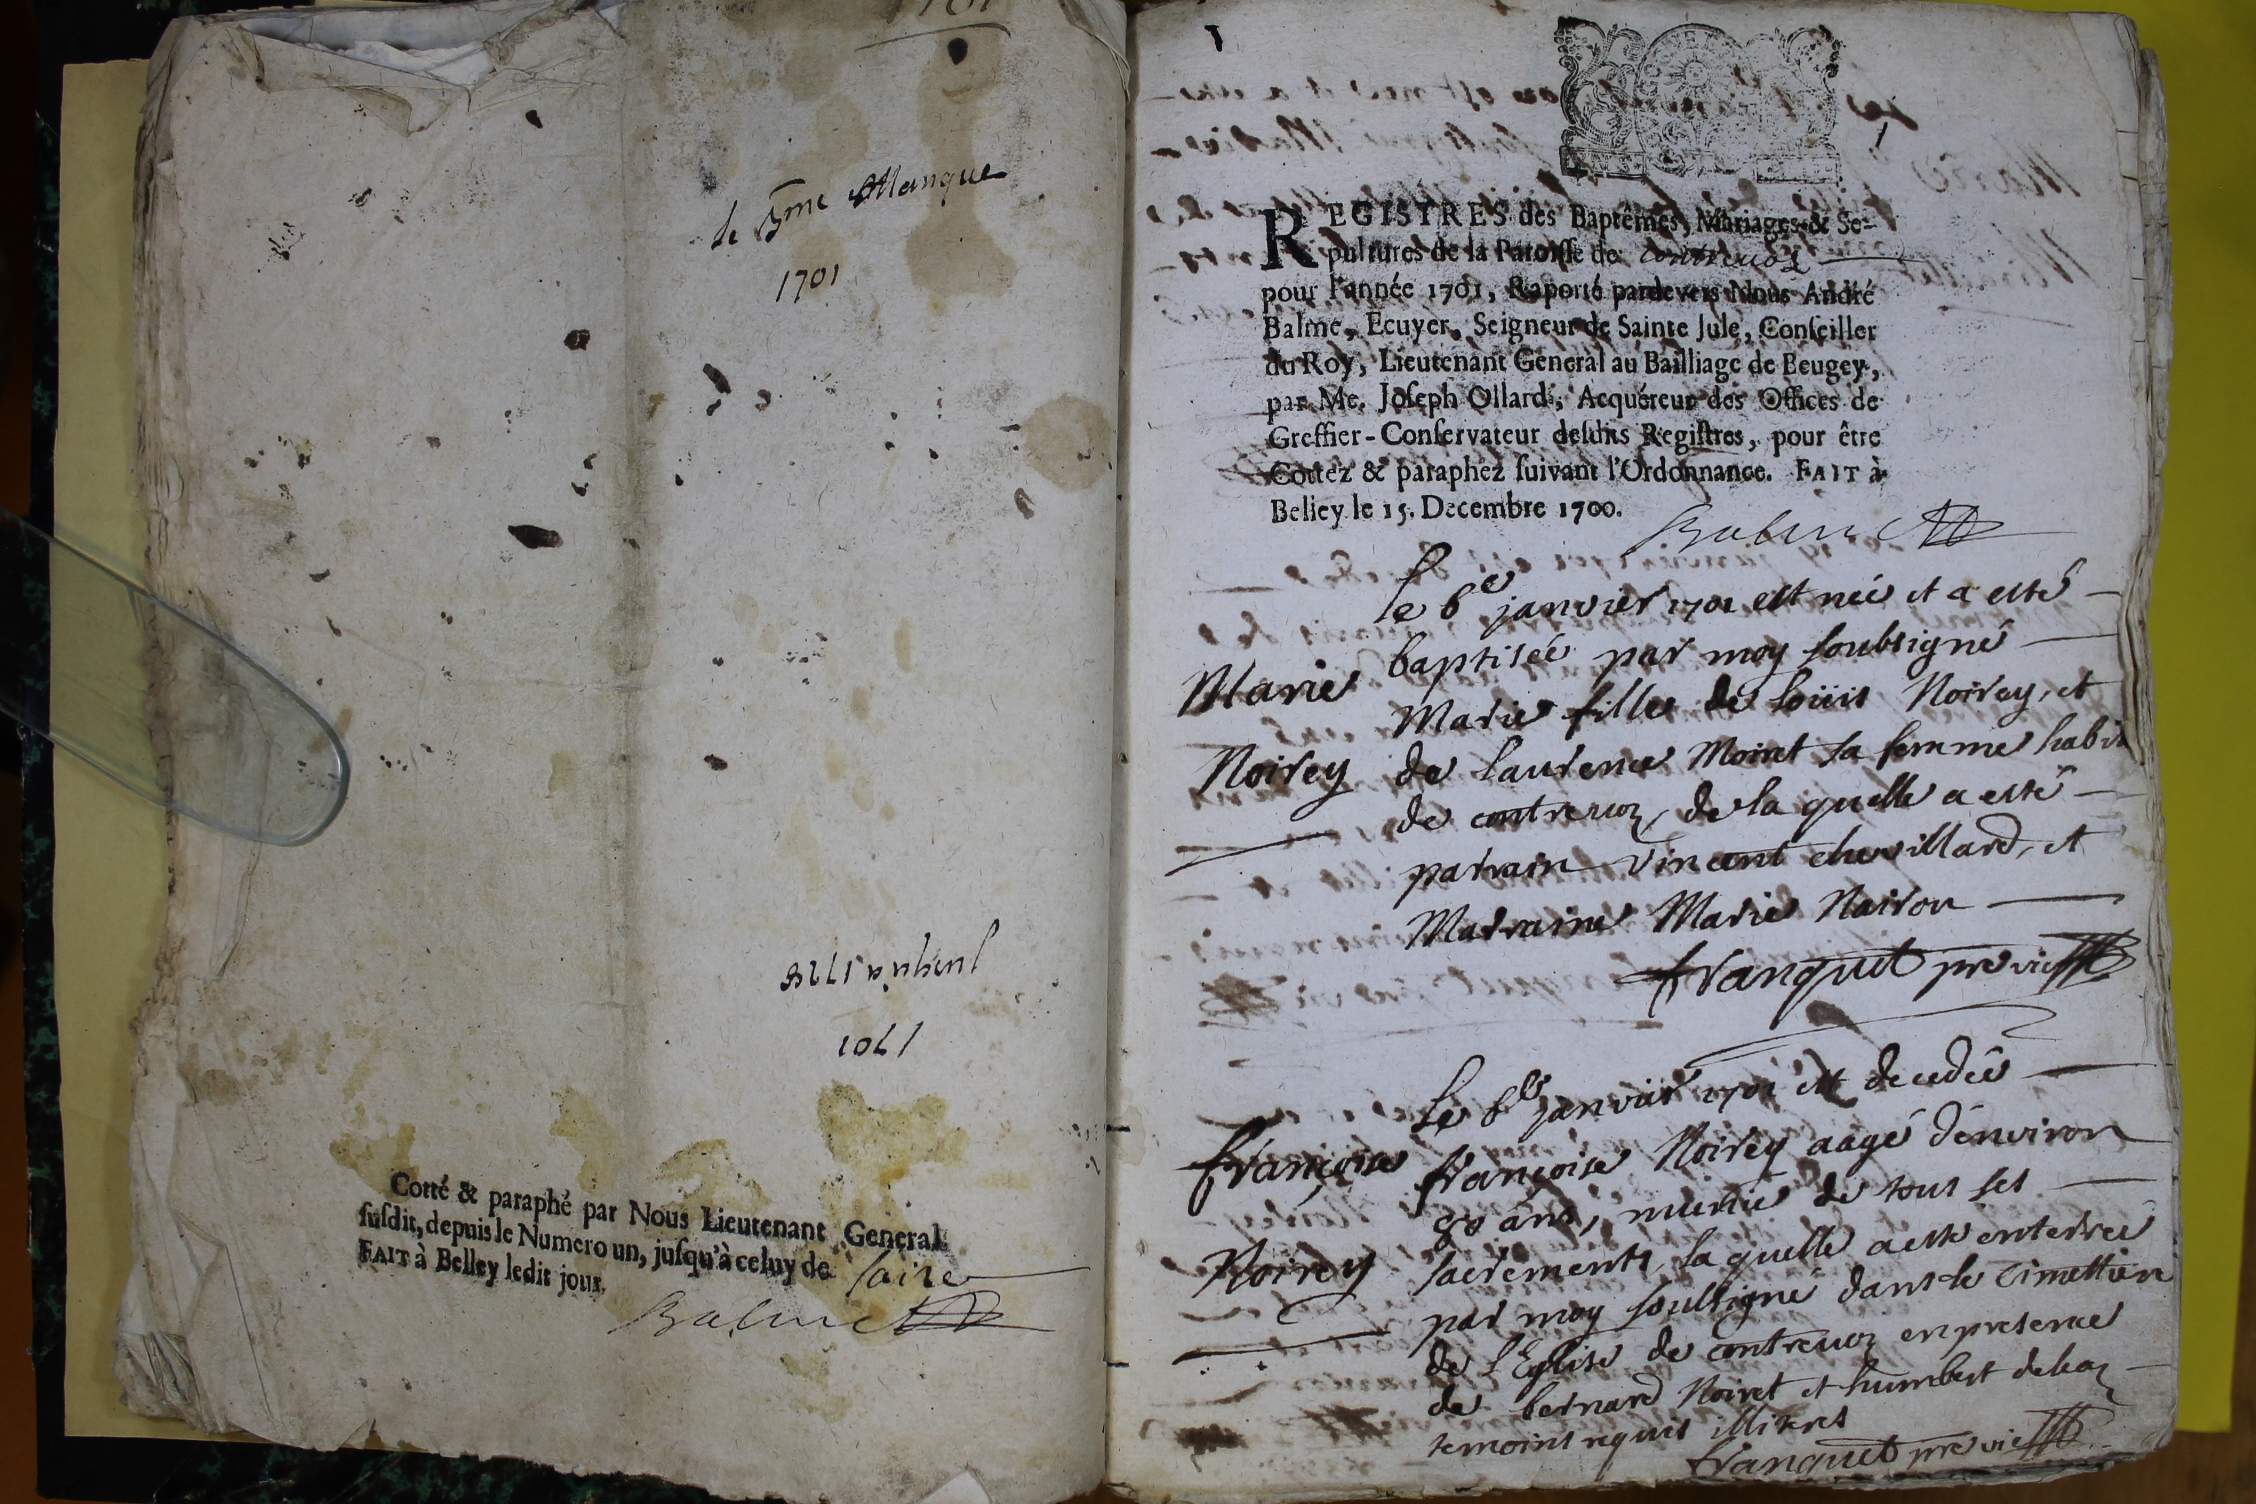 1701
le 5me Manque
1701
jusqu'a 1718
1701
Cotté & paraphé par Nous Lieutenant General
susdit, depuis le Numero un, jusqu'à celuy de saize
FAIT à Belley ledit jour.
Balme
1
REGISTRES des Baptêmes, Mariages & Se-
pultures de la Paroisse de contrevoz
pour l'année 1701, Raporté pardevers Nous André
Balme, Ecuyer, Seigneur de Sainte Jule, Conseiller
du Roy, Lieutenant General au Bailliage de Beugey,
par Me. Joseph Ollard, Acquéreur des Offices de
Greffier-Conservateur desdits Registres, pour être
Cottez & paraphez suivant l'Ordonnance. FAIT à
Belley le 15. Decembre 1700.
Balme
le 6e janvier 1701 est neé et a esté
baptiseé par moy soubsigné
Marie
Marie fille de Loüis Noirey, et
Noirey
de Laurence Moiret sa femme habit
de contrevoz, de la quelle a esté
parrain Vincent chevillard, et
Marraine Marie Nairon
franquet pre vic
Le 6e janvier 1701 est decedeé
françoise
françoise Noirey aagé d'environ
80 ans, munie de tous ses
Noirey
sacrements, la quelle a esté enterreé
par moy soubsigné dans le Cimettiere
de l'Eglise de contrevoz en presence
de bernard Noiret et humbert
temoins requis illitres
franquet pre vic